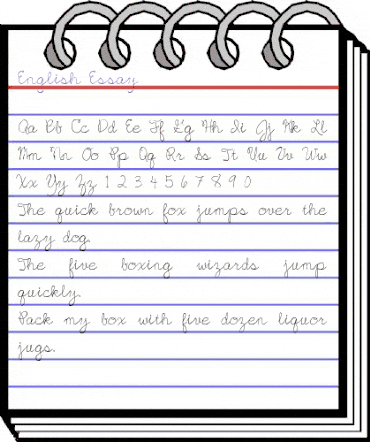 English Essay
Aa Bb Cc Dd Ee Ff Gg Hh Ii Jj Kk Ll
Mm Nn Oo Pp Qq Rr Ss Tt Uu Vv Ww
Xx Yy Zz 1 2 3 4 5 6 7 8 9 0
The quick brown fox jumps over the
lazy dog.
The five boxing wizards jump
quickly.
Pack my box with five dozen liquor
jugs.